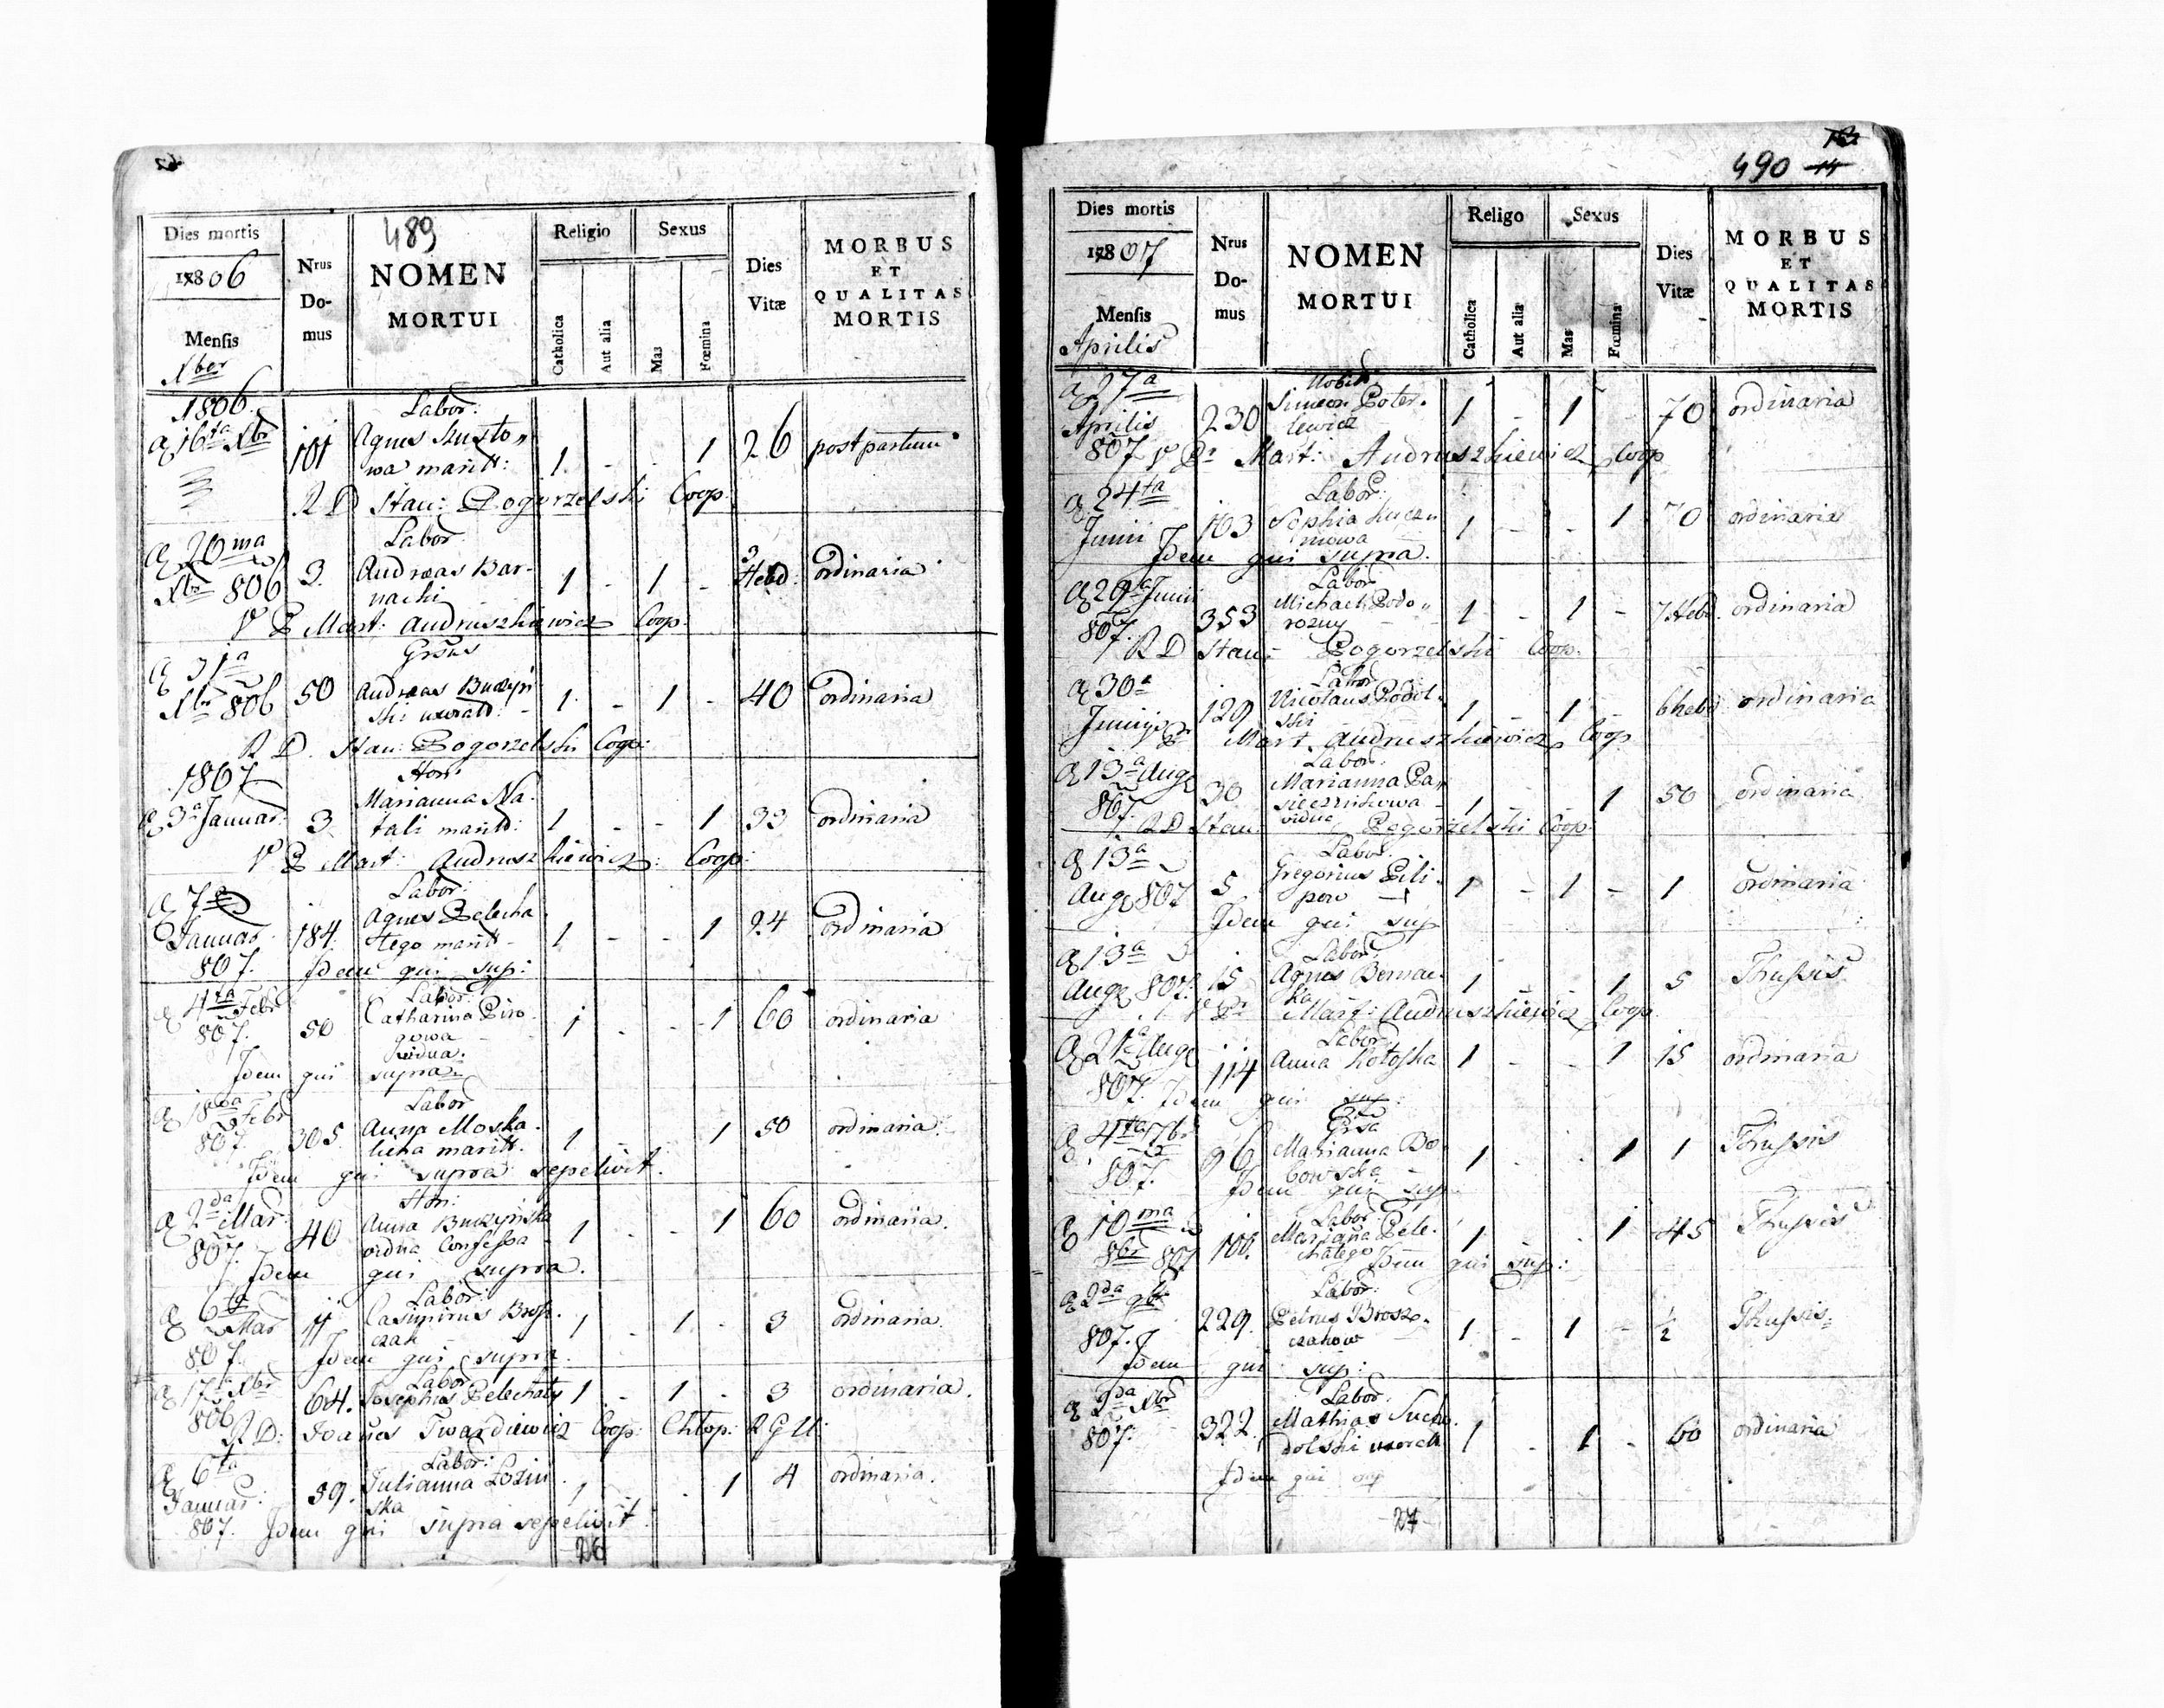 489
Dies mortis
1806
Mensis
Xber
Nrus
Do-
mus
NOMEN
MORTUI
Religio
Catholica
Aut alia
Sexus
Mas
Fœmina
Dies
Vitæ
MORBUS
ET
QUALITAS
MORTIS
1806.
Labor:
a 16ta Xbr 101 Agnes
wa maritt: 1. - - 1 26 post partum
R D Stan: Pogorzelski Coop:
Labor
a 20ma
Xbr 806 3. Andreas Bar-
nacki 1 - 1 - 3 Hebd: ordinaria
V P Mart: Andruszkiewicz Coop:
a 31a
Xbr 806 50 Andreas Buczyń
ski uxorat: - 1. - 1 - 40 ordinaria
R D. Stan: Pogorzelski Coop:
1807
Hon:
a 3a Januar: 3. Marianna Na-
tali maritt: 1 - - 1 33 ordinaria
V P Mart: Andruszkiewicz: Coop:
Labor:
a 7a
Januar 184. Agnes Pelecha
tego maritt - 1 - - 1 24 ordinaria
807. Idem qui sup:
Labor:
a 4ta Febr
807. 50 Catharina Piro-
gowa
vidua. 1 - - 1 60 ordinaria
Idem qui supra
Labor
a 18va Febr
807. 305. Anna Moska-
licha maritt. 1 - - 1 50 ordinaria
Idem qui supra sepelivit.
Hon:
a 2da Mar:
807. 40 Anna Buczyńska
vidua Confessa - 1 - - 1 60 ordinaria.
Idem qui supra.
Labor:
a 6ta Mar
807. 11 Casimirus Brosz-
czak 1 - 1 - 3 ordinaria.
Idem qui supra.
Labor
a 17a Xbr
806 64. Josephus Pelechaty 1 - 1 - 3 ordinaria.
R D: Joanes Twardiewicz Coop: Chłop: R G U:
Labor:
a 6ta
Januar: 59. Julianna Lozin
ska 1 - - 1 4 ordinaria.
807. Idem qui supra sepelivit
26
490 14
Dies mortis
1807
Mensis
Aprilis
Nrus
Do-
mus
NOMEN
MORTUI
Religo
Catholica
Aut alia
Sexus
Mas
Fœmina
Dies
Vitæ
MORBUS
ET
QUALITAS
MORTIS
a 27a
Aprilis 230 Simeon
lewicz 1 - 1 - 70 ordinaria
807 V Pr Mart: Andruszkiewicz Coop
a 24ta Labor:
Junii 103 Sophia
mowa 1 - - 1 70 ordinaria
Idem qui supra.
a 29a Junii Labor
807. 353 Michael Podo„
rozny 1 - 1 - 7 Hebd. ordinaria
R D Stan: Pogorzelski Coop:
a 30a Labor
Junii 129 Nicolaus Podol-
ski 1 - 1 - 6 hebd ordinaria
Pr Mart. Andruszkiewicz Coop
a 13a Aug Labor.
807. 30 Marianna Pa„
vidua 1 - - 1 50 ordinaria
R D Stan: Pogorzelski Coop:
a 13a Labor.
Aug 807 5 Gregorius Pili-
pow 1 - 1 - 1 ordinaria
Idem qui sup
a 13a Labor.
Aug 807. 15 Agnes Bernac-
ka 1 - - 1 5 Thussis
V Pr Mart: Andruszkiewicz Coop
a 21a Aug Labor
807. 114 Anna 1 - - 1 15 ordinaria
Idem qui sup:
a 4ta 7br
807. 96 Marianna Bo-
1 - - 1 1 Thussis
Idem qui sup
a 10ma Labor
8br 807 100. Mariana Pele-
chatego 1 - 1 45 Thussis
Idem qui sup:
a 2da 9br Labor:
807. 229. Petrus Brosz-
czakow 1 - 1 - 1/2 Thussis.
Idem qui sup:
a 2da Xbr Labor.
807. 322. Mathias Sucho-
dolski uxorat 1 - 1 - 60 ordinaria
Idem qui sup
27